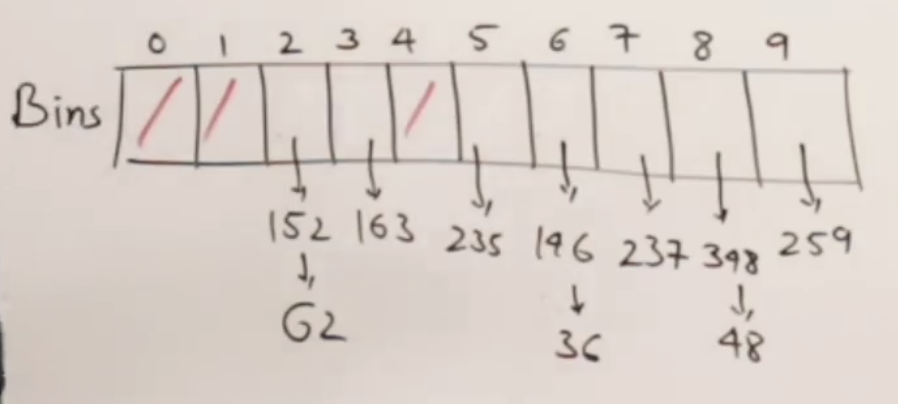 0 1 2 3 4 5 6 7 8 9
Bins
152 163 235 146 237 348 259
62 36 48